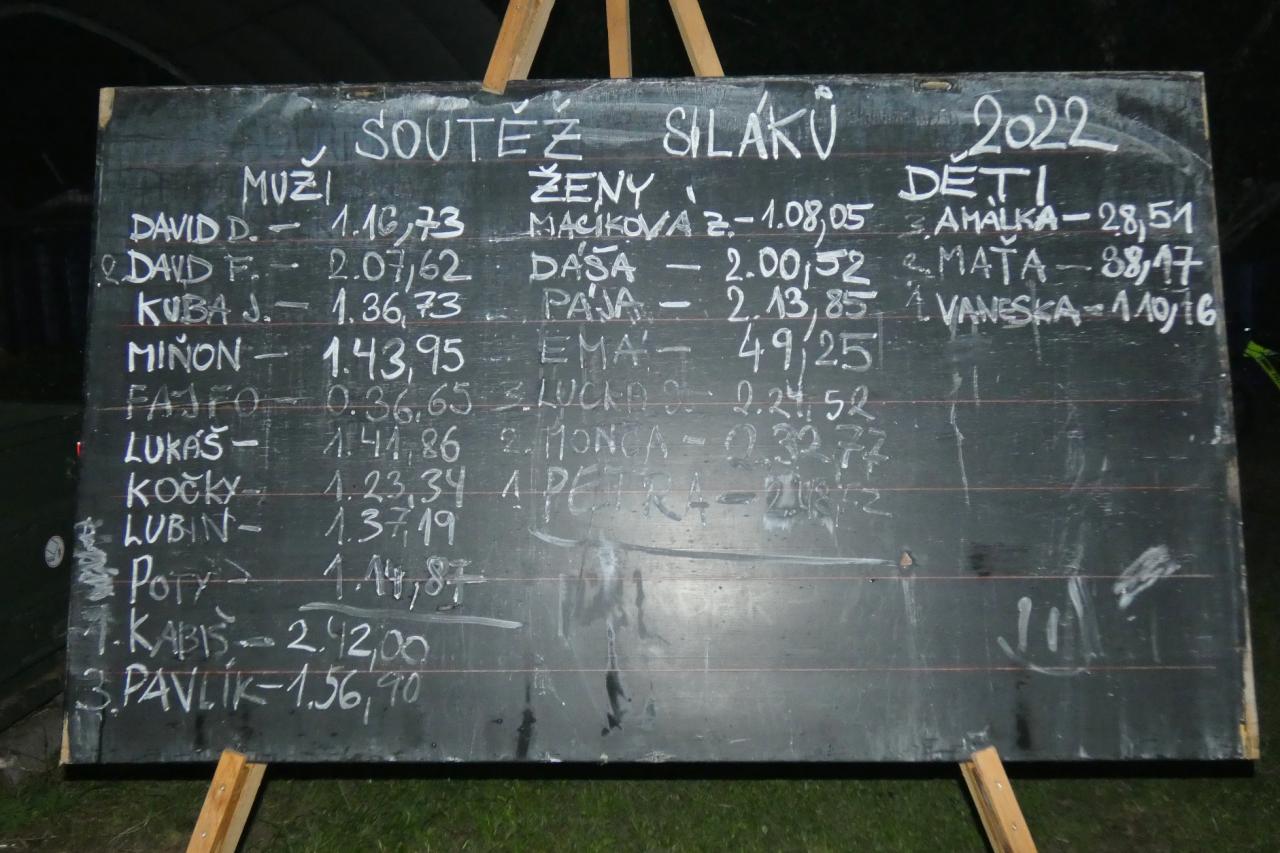 SOUTĚŽ SILÁKŮ 2022
MUŽI
DAVID D. – 1.16,73
2. DAVID F. – 2.07,62
KUBA J. – 1.36,73
MIŇON – 1.43,95
FAJFO – 0.36,65
LUKÁŠ – 1.41,86
KOČKY – 1.23,34
LUBIN – 1.37,19
POTY – 1.14,87
1. KABIŠ – 2.42,00
3. PAVLÍK – 1.56,90
ŽENY
MACÍKOVÁ Z. – 1.08,05
DÁŠA – 2.00,52
PÁJA – 2.13,85
EMA – 49,25
3. LUCKA – 2.24,52
2. MONČA – 0.32,77
1 PETRA –
DĚTI
3. AMÁLKA – 28,51
2. MAŤA – 38,17
1. VANESKA – 1 10,16